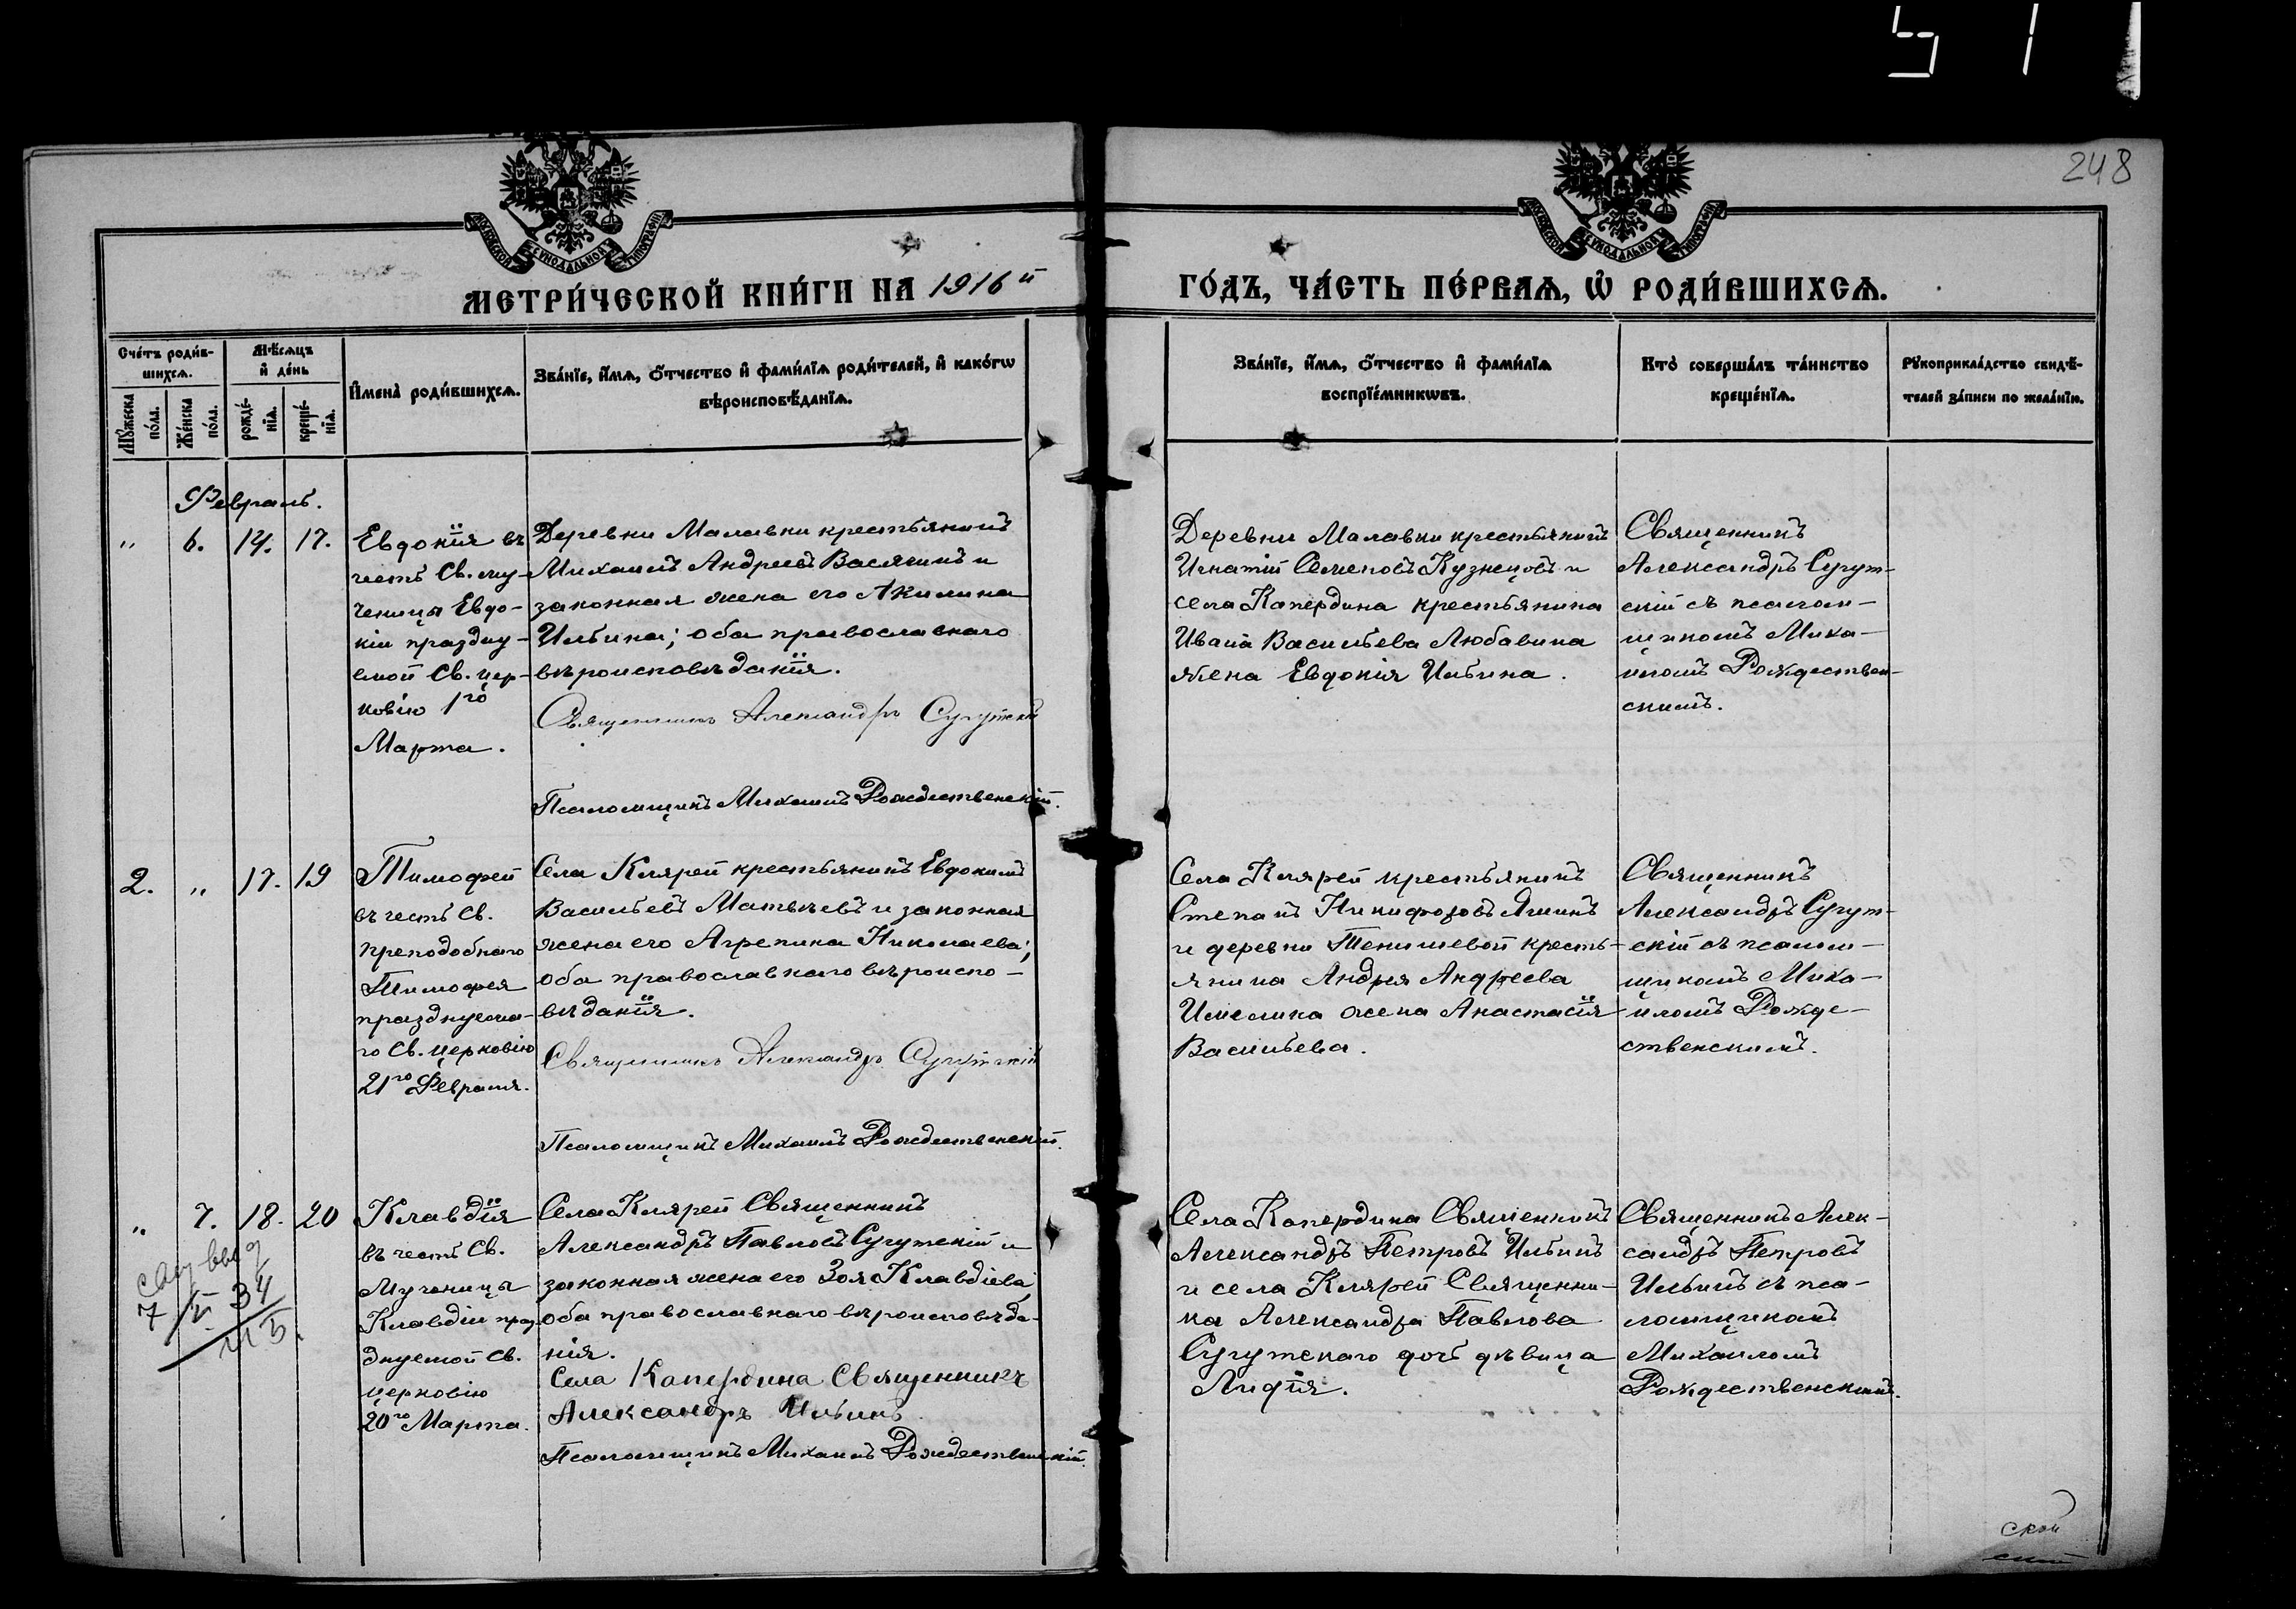 5 1
248
МОСКОВСКОЙ СѴНОДАЛЬНОЙ ТИПОГРАФІИ
МОСКОВСКОЙ СѴНОДАЛЬНОЙ ТИПОГРАФІИ
МЕТРИ́ЧЕСКОЙ КНИ́ГИ НА 1916й
ГО́ДЪ, ЧА́СТЬ ПЕ́РВАѦ, Ѡ҆ РОДИ́ВШИХСѦ.
Сче́тъ роди́в-
шихсѧ.
Мѣ́сѧцъ
и҆ де́нь
Мꙋ́жеска
по́ла.
Же́нска
по́ла.
рожде́-
нїѧ.
креще́-
нїѧ.
И҆мена̀ роди́вшихсѧ.
Зва́нїе, и҆́мѧ, ѻ҆́тчество и҆ фами́лїѧ роди́телей, и҆ како́гѡ
вѣроисповѣ́данїѧ.
Зва́нїе, и҆́мѧ, ѻ҆́тчество и҆ фами́лїѧ
воспрїе́мникѡвъ.
Кто̀ соверша́лъ та́инство
креще́нїѧ.
Рꙋкоприкла́дство свидѣ́-
телей за́писи по жела́нїю.
Февраль.
„ 6. 14. 17.
Евдокія въ
честь Св. му-
ченицы Евдо-
кіи праздну-
емой Св. цер-
ковію 1го
Марта.
Деревни Малавки крестьянинъ
Михаилъ Андреевъ Васячинъ и
законная жена его Акилина
Ильина; оба православнаго
вѣроисповѣданія.
Священникъ Александръ Сугутскій
Псаломщикъ Михаилъ Рождественскій.
Деревни Малавки крестьянинъ
Игнатій Семеновъ Кузнецовъ и
села Капердина крестьянина
Ивана Васильева Любавина
жена Евдокія Ильина.
Священникъ
Александръ Сугут-
скій съ псалом-
щикомъ Миха-
иломъ Рождествен-
скимъ.
2. „ 17. 19
Тимофей
въ честь Св.
преподобнаго
Тимофея
празднуема-
го Св. церковію
21го Февраля.
Села Клярей крестьянинъ Евдокимъ
Васильевъ Матвѣевъ и законная
жена его Агрепина Николаева;
оба православнаго вѣроиспо-
вѣданія.
Священникъ Александръ Сугутскій
Псаломщикъ Михаилъ Рождественскій.
Села Клярей крестьянинъ
Степанъ Никифоровъ Яшинъ
и деревни Тенишевой кресть-
янина Андрея Андреева
Имелина жена Анастасія
Васильева.
Священникъ
Александръ Сугут-
скій съ псалом-
щикомъ Миха-
иломъ Рожде-
ственскимъ.
„ 7. 18. 20
7 34
Клавдія
въ честь Св.
Мученицы
Клавдіи праз-
днуемой Св.
церковію
20го Марта.
Села Клярей Священникъ
Александръ Павловъ Сугутскій и
законная жена его Зоя Клавдіева;
оба православнаго вѣроисповѣда-
нія.
Села Капердина Священникъ
Александръ Ильинъ
Псаломщикъ Михаилъ Рождественскій.
Села Капердина Священникъ
Александръ Петровъ Ильинъ
и села Клярей Священни-
ка Александра Павлова
Сугутскаго дочь дѣвица
Лидія.
Священникъ Алек-
сандръ Петровъ
Ильинъ съ пса-
ломщикомъ
Михаиломъ
Рождественскимъ.
ской